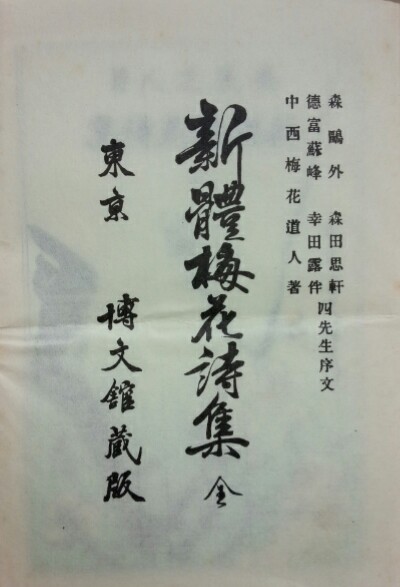 森鷗外 森田思軒
德富蘇峰 幸田露伴
四先生序文
中西梅花道人著
新體梅花詩集 全
東京 博文館蔵版